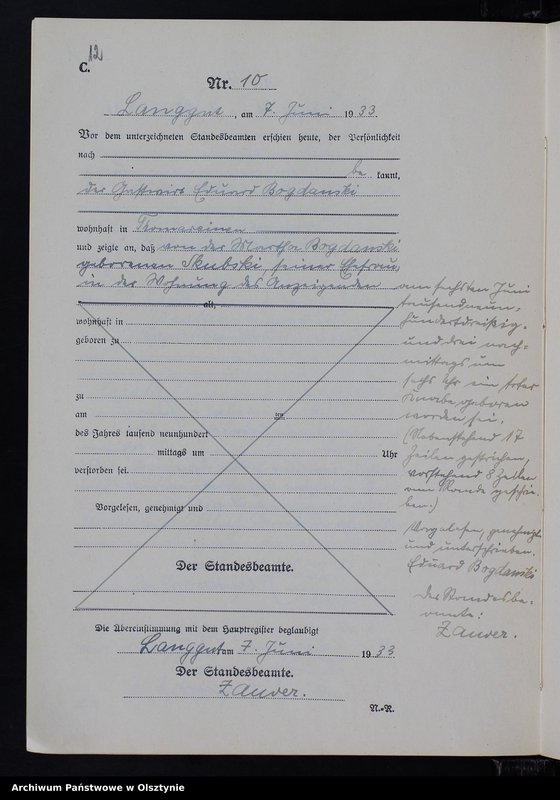 12
C.
Nr. 10
Langgut, am 7. Juni 1933.
Vor dem unterzeichneten Standesbeamten erschien heute, der Persönlichkeit
nach
be kannt,
der Gastwirt Eduard Bogdanski
wohnhaft in Thomareinen
und zeigte an, daß von der Martha Bogdanski
geborenen Skubski, seiner Ehefrau,
in der Wohnung des Anzeigenden
alt,
wohnhaft in
geboren zu
zu
am ten
des Jahres tausend neunhundert
mittags um Uhr
verstorben sei.
Vorgelesen, genehmigt und
Der Standesbeamte.
am sechsten Juni
tausendneun-
hundertdreißig-
und drei nach-
mittags um
sechs Uhr ein toter
Knabe geboren
worden sei.
(Nebenstehend 17
Zeilen gestrichen,
vorstehend 8 Zeilen
am Rande geschrie-
ben.)
Vorgelesen, genehmigt
und unterschrieben.
Eduard Bogdanski
Der Standesbe-
amte:
Zauver.
Die Übereinstimmung mit dem Hauptregister beglaubigt
Langgut am 7. Juni 1933
Der Standesbeamte.
Zauver.
N.-R.
Archiwum Państwowe w Olsztynie